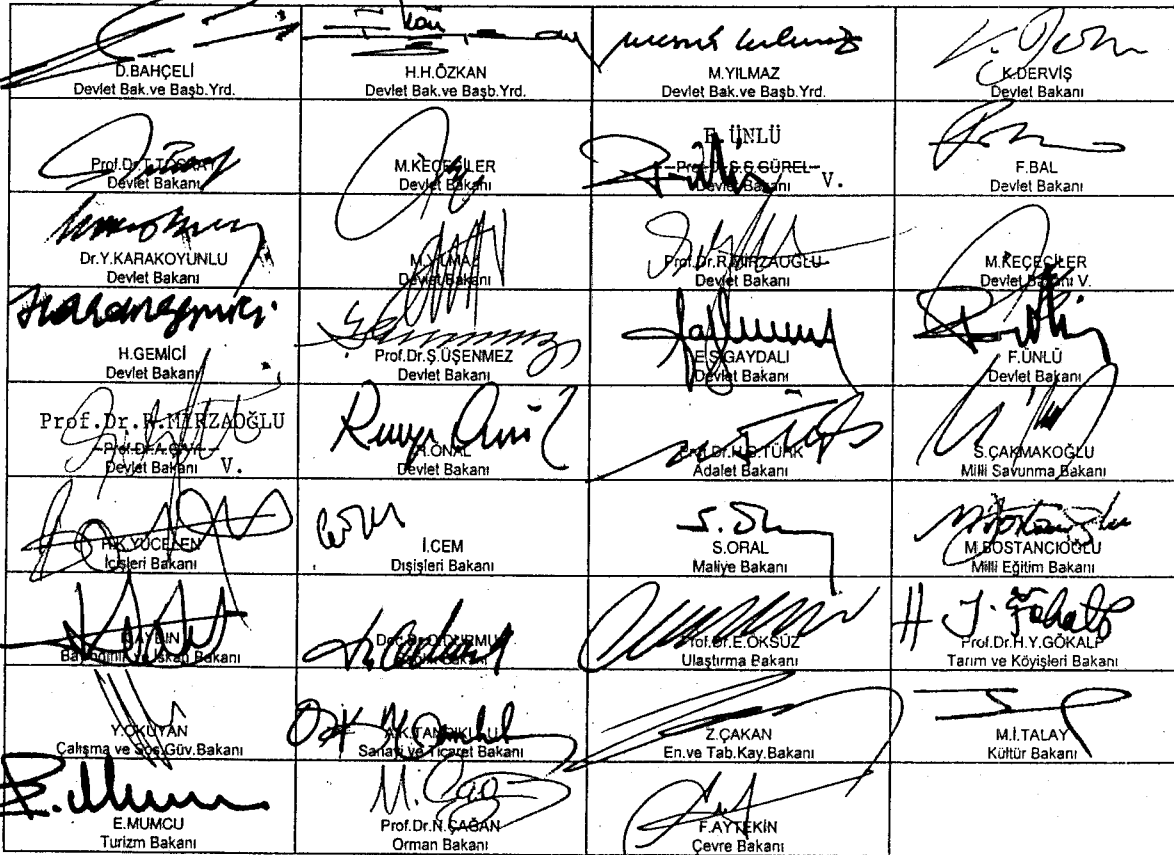 D.BAHÇELİ
Devlet Bak.ve Başb.Yrd.
H.H.ÖZKAN
Devlet Bak.ve Başb.Yrd.
M.YILMAZ
Devlet Bak.ve Başb.Yrd.
K.DERVİŞ
Devlet Bakanı
Prof.Dr.T.TOSKAY
Devlet Bakanı
M.KEÇECİLER
Devlet Bakanı
F. ÜNLÜ
Prof.Dr.Ş.S.GÜREL
Devlet Bakanı V.
F.BAL
Devlet Bakanı
Dr.Y.KARAKOYUNLU
Devlet Bakanı
M.YILMAZ
Devlet Bakanı
Prof.Dr.R.MİRZAOĞLU
Devlet Bakanı
M.KEÇECİLER
Devlet Bakanı V.
H.GEMİCİ
Devlet Bakanı
Prof.Dr.Ş.ÜŞENMEZ
Devlet Bakanı
E.S.GAYDALI
Devlet Bakanı
F.ÜNLÜ
Devlet Bakanı
Prof.Dr.R.MİRZAOĞLU
Prof.Dr.A.
Devlet Bakanı V.
R.ÖNAL
Devlet Bakanı
Prof.Dr.H.S.TÜRK
Adalet Bakanı
S.ÇAKMAKOĞLU
Milli Savunma Bakanı
R.K.YÜCELEN
İçişleri Bakanı
İ.CEM
Dışişleri Bakanı
S.ORAL
Maliye Bakanı
M.BOSTANCIOĞLU
Milli Eğitim Bakanı
K.AYDIN
Bayındırlık ve İskan Bakanı
Doç.Dr.O.DURMUŞ
Sağlık Bakanı
Prof.Dr.E.ÖKSÜZ
Ulaştırma Bakanı
Prof.Dr.H.Y.GÖKALP
Tarım ve Köyişleri Bakanı
Y.OKUYAN
Çalışma ve Sos.Güv.Bakanı
A.K.TANRIKULU
Sanayi ve Ticaret Bakanı
Z.ÇAKAN
En.ve Tab.Kay.Bakanı
M.İ.TALAY
Kültür Bakanı
E.MUMCU
Turizm Bakanı
Prof.Dr.N.ÇAĞAN
Orman Bakanı
F.AYTEKİN
Çevre Bakanı